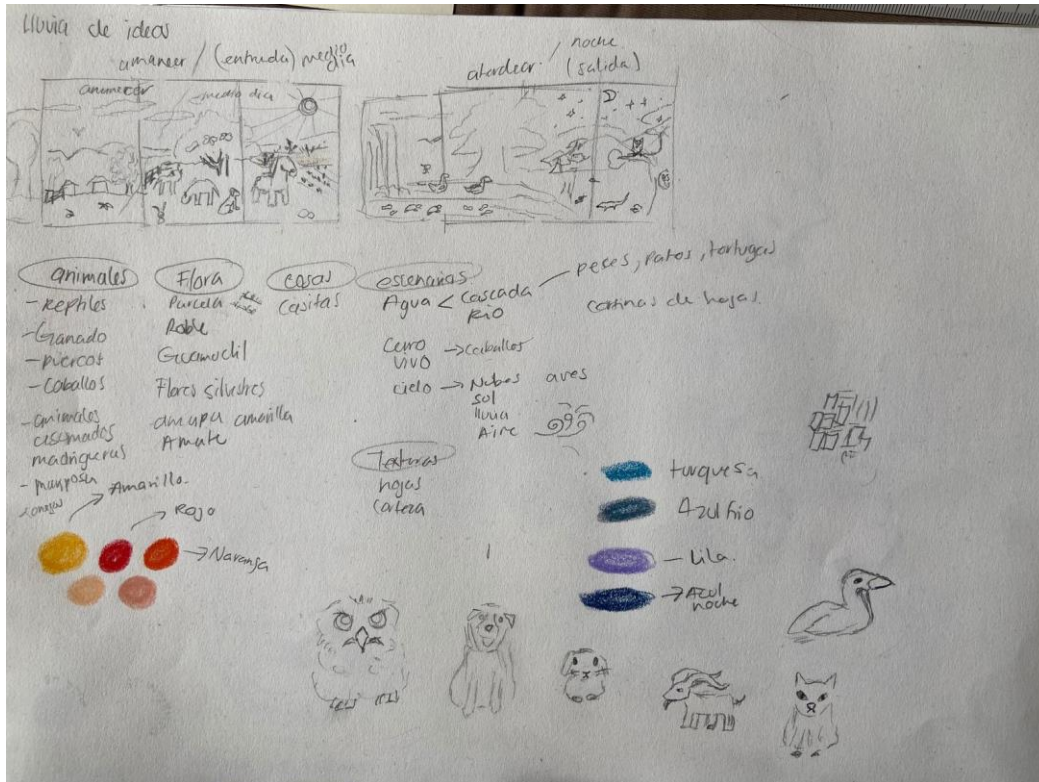 Lluvia de ideas
amanecer / (entrada) medio día
atardecer / noche
(salida)
amanecer
medio dia
animales
- Reptiles
- Ganado
- puercos
- Caballos
- animales
madrigueras
- mariposa
conejos
Flora
Parcela
Roble
Guamuchil
Flores silvestres
amapa amarilla
Amate
casas
Casitas
escenarios
Agua < Cascada
Rio
peces, patos, tortugas
Cerro
vivo
→ Caballos
cielo → Nubes aves
sol
lluvia
Aire
cortinas de hojas.
Texturas
hojas
Corteza
Amarillo.
Rojo
Naranja
turquesa
Azul frio
Lila.
Azul
noche